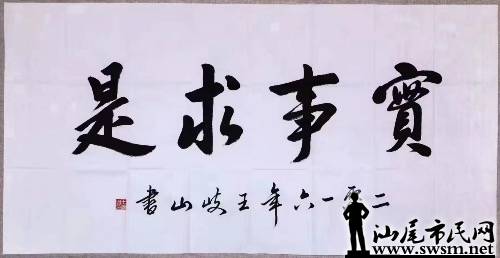 實事求是
二一六年王岐山書
汕尾市民网
www.swsm.net